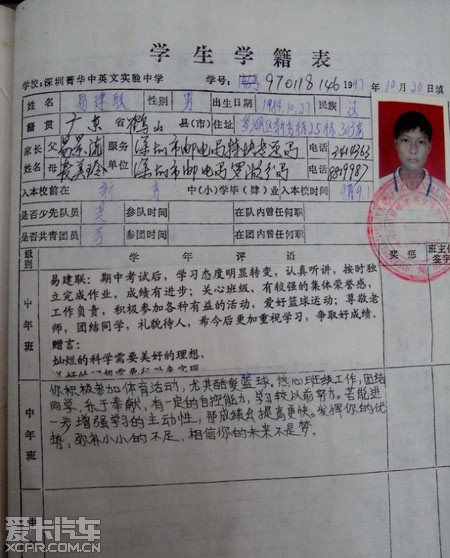 学生学籍表
学校:深圳菁华中英文实验中学 学号: 970118146 1997年10月20日填
姓名 易建联 性别 男 出生日期 1984.10.27 民族 汉
籍贯 广东省鹤山县(市)住址
家长 父 易景流 服务 深圳市邮电局 电话
母 单位 深圳市邮电局 电话
入本校前在 中(小)学毕(肄)业入本校时间
是否少先队员 参队时间 在队内曾任何职
是否共青团员 参团时间 在团内曾任何职
奖惩 班主任签字
级别 学年评语
中年班
易建联:期中考试后,学习态度明显转变,认真听讲,按时独
立完成作业,成绩有进步;关心班级,有较强的集体荣誉感,
工作负责,积极参加各种有益的活动,爱好篮球运动;尊敬老
师,团结同学,礼貌待人,希今后更加重视学习,争取好成绩。
赠言:
灿烂的科学需要美好的理想,
中年班
你积极参加体育活动,尤其酷爱篮球。热心班级工作,团结
同学,乐于奉献,有一定的自控能力,学习较以前努力。若能进
一步增强学习的主动性,那成绩会提高更快。发挥你的优
势,弥补小小的不足,相信你的未来不是梦。
中
爱卡汽车
XCPR.COM.CN